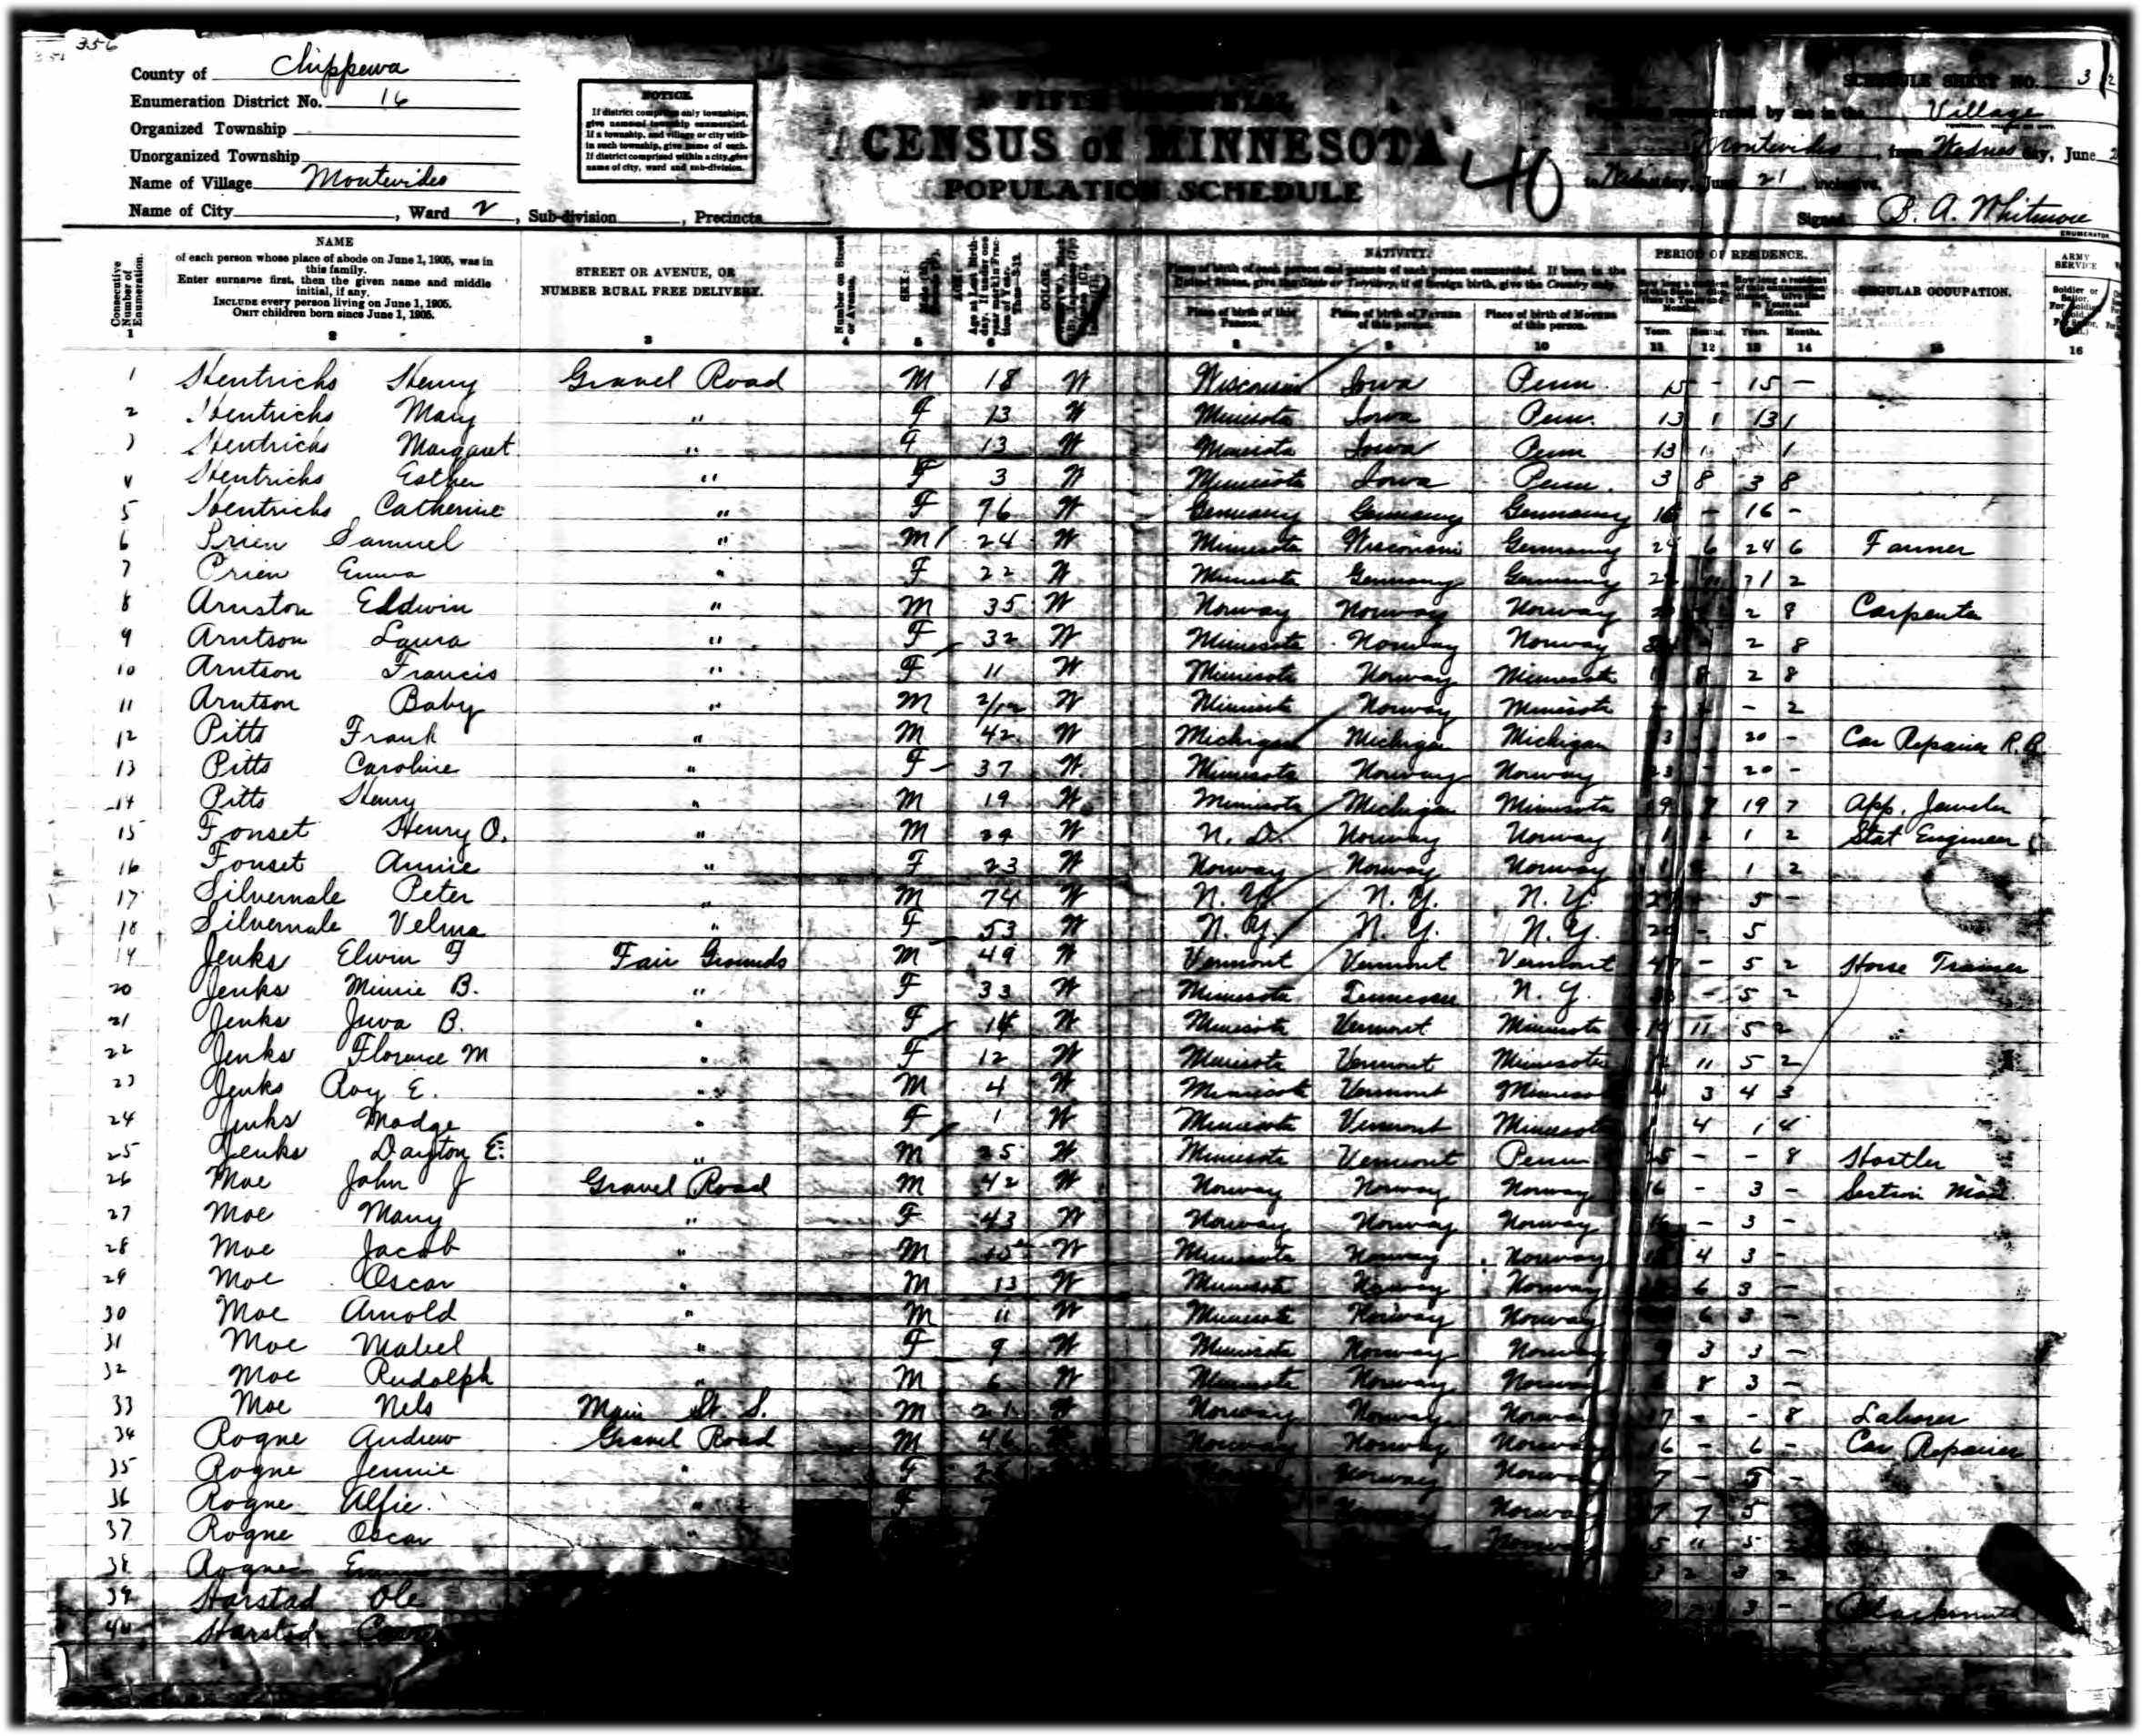 356
County of Chippewa
Enumeration District No. 16
Organized Township
Unorganized Township
Name of Village Montevideo
Name of City , Ward 2 , Sub-division , Precincts
NOTICE.
If district comprises only townships,
give name of township enumerated.
If a township, and village or city with-
in such township, give name of each.
If district comprised within a city, give
name of city, ward and sub-division.
CENSUS OF MINNESOTA
POPULATION SCHEDULE
40
SCHEDULE SHEET NO. 3
by me in the Village
Montevideo, from Wednesday, June
June 21, inclusive.
Signed B. A. Whitmore
ENUMERATOR
Consecutive Number of Enumeration.
1
NAME
of each person whose place of abode on June 1, 1905, was in
this family.
Enter surname first, then the given name and middle
initial, if any.
INCLUDE every person living on June 1, 1905.
OMIT children born since June 1, 1905.
2
STREET OR AVENUE, OR
NUMBER RURAL FREE DELIVERY.
3
Number on Street or Avenue.
4
SEX
5
COLOR
NATIVITY.
Place of birth of each person and parents of each person enumerated. If born in the
United States, give the State or Territory, if of foreign birth, give the Country only.
Place of birth of this Person.
8
Place of birth of FATHER of this person.
9
Place of birth of MOTHER of this person.
10
PERIOD OF RESIDENCE.
Years. Months. Years. Months.
11 12 13 14
REGULAR OCCUPATION.
15
ARMY SERVICE
Soldier or Sailor.
16
1 Hentrichs Henry Gravel Road M 18 W Wisconsin Iowa Penn. 15 - 15 -
2 Hentrichs Mary " F 13 W Minnesota Iowa Penn. 13 1 13 1
3 Hentrichs Margaret " F 13 W Minnesota Iowa Penn 13 1 1
4 Hentrichs Esther " F 3 W Minnesota Iowa Penn. 3 8 3 8
5 Hentrichs Catherine " F 76 W Germany Germany Germany 16 - 16 -
6 Prien Samuel " M 24 W Minnesota Wisconsin Germany 24 6 24 6 Farmer
7 Prien Emma " F 22 W Minnesota Germany Germany 2
8 Arnston Eddwin " M 35 W Norway Norway Norway 2 8 Carpenter
9 Arntson Laura " F 32 W Minnesota Norway Norway 2 8
10 Arntson Francis " F 11 W Minnesota Norway Minnesota 8 2 8
11 Arntson Baby " M 2/12 W Minnesota Norway Minnesota - 2
12 Pitts Frank " M 42 W Michigan Michigan Michigan 20 - Car Repairer R.R.
13 Pitts Caroline " F 37 W Minnesota Norway Norway 20 -
14 Pitts Henry " M 19 W Minnesota Michigan Minnesota 19 7 19 7 App. Jeweler
15 Fonset Henry O. " M 29 W N. D. Norway Norway 1 2 1 2 Stat Engineer
16 Fonset Annie " F 23 W Norway Norway Norway 1 2 1 2
17 Silvernale Peter " M 74 W N. Y. N. Y. N. Y. 5 -
18 Silvernale Velma " F 53 W N. Y. N. Y. N. Y. 5
19 Jenks Elwin F Fair Grounds M 49 W Vermont Vermont Vermont 47 - 5 2 Horse Trainer
20 Jenks Minnie B. " F 33 W Minnesota Tennessee N. Y. 33 - 5 2
21 Jenks Juva B. " F 14 W Minnesota Vermont Minnesota 14 11 5 2
22 Jenks Florence M " F 12 W Minnesota Vermont Minnesota 12 11 5 2
23 Jenks Roy E. " M 4 W Minnesota Vermont Minnesota 4 3 4 3
24 Jenks Madge " F 1 W Minnesota Vermont Minnesota 1 4 1 4
25 Jenks Dayton E. " M 25 W Minnesota Vermont Penn 25 - - 8 Hostler
26 Moe John J Gravel Road M 42 W Norway Norway Norway 16 - 3 - Section Man
27 Moe Mary " F 43 W Norway Norway Norway 16 - 3 -
28 Moe Jacob " M 15 W Minnesota Norway Norway 15 4 3 -
29 Moe Oscar " M 13 W Minnesota Norway Norway 6 3 -
30 Moe Arnold " M 11 W Minnesota Norway Norway 6 3 -
31 Moe Mabel " F 9 W Minnesota Norway Norway 9 3 3 -
32 Moe Rudolph " M 6 W Minnesota Norway Norway 6 8 3 -
33 Moe Nels Main St. S. M 21 W Norway Norway Norway 17 - - 8 Laborer
34 Rogne Andrew Gravel Road M 46 Norway Norway Norway 16 - 6 - Car Repairer
35 Rogne Jennie " F Norway Norway 7 - 5 -
36 Rogne Alfie " F Norway Norway 7 7 5 -
37 Rogne Oscar " Norway 5 11 5 -
38 Rogne 3 2 3 2
39 Harstad Ole 3 - Blacksmith
40 Harstad